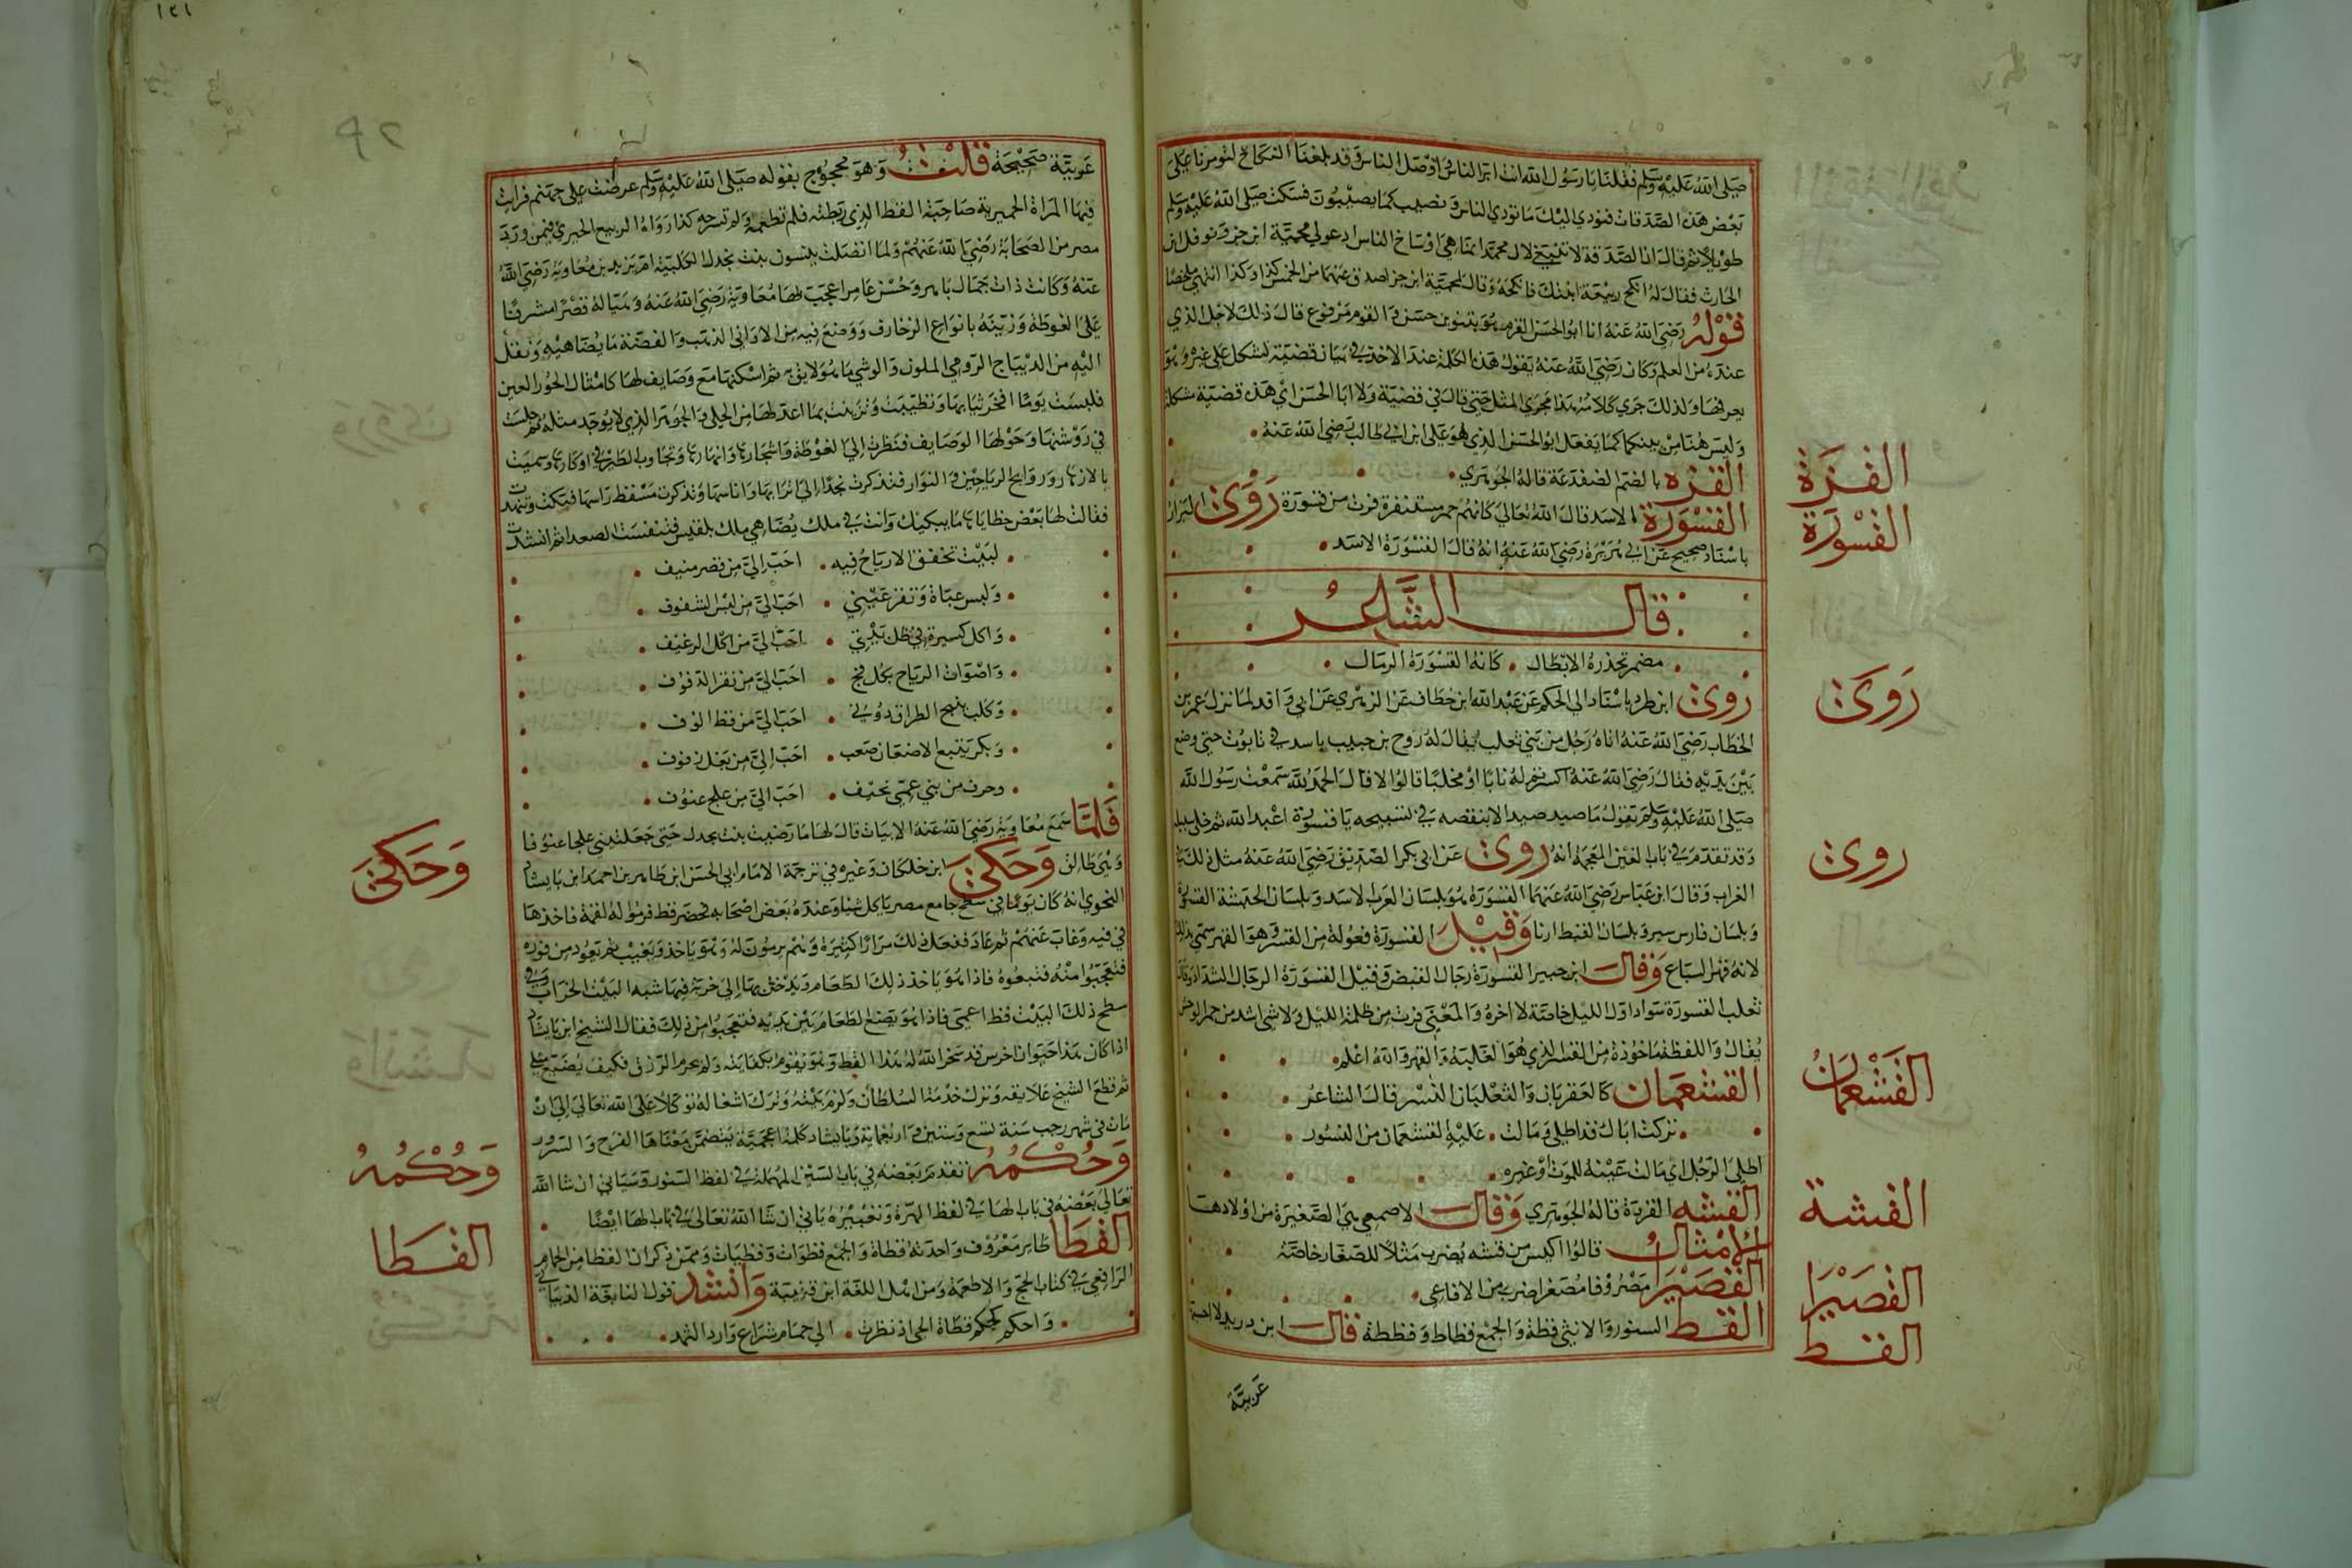 صلى الله عليه وسلم فقلنا يا رسول الله انت ابر الناس واوصل الناس وقد بلغنا النكاح لتومرنا على
بعض هذه الصدقات فنودي اليك ما تودي الناس ونصيب كما يصيبون فسكت صلى الله عليه وسلم
طويلا ثم قال ان الصدقة لا تنبغي لال محمد انما هي اوساخ الناس ادعو لي محمية ابن جزء ونوفل ابن
الحارث فقال له انكح ربيعة ابنتك فانكحه وقال لمحمية ابن جزا اصدق عنهما من الخمس كذا وكذا انتهى ملخصا
قوله رضي الله عنه انا ابو الحسن القرم هو بتنوين حسن والقوم مرفوع قال ذلك لاجل الذي
عنده من العلم وكان رضي الله عنه يقول هذه الكلمة عند الاخذ في بيان قضية تشكل على غيره وهو
يعرفها ولذلك جرى كلامه هذا مجرى المثل حتى قال في قضية ولا ابا الحسن اي هذه قضية مشكلة
وليس هنا من يبينها كما يفعل ابو الحسن الذي هو علي ابن ابي طالب رضي الله عنه
القزه بالضم الضفدعة قاله الجوهري
القسورة الاسد قال الله تعالى كانهم حمر مستنفرة فرت من قسورة روى البزار
باسناد صحيح عن ابي هريرة رضي الله عنه انه قال القسورة الاسد
قال الشاعر
مضمر تحذره الابطال كانه القسورة الرمال
روى ابن طرو باسناد الي الحكم عن عبد الله ابن خطاف عن الزهري عن ابي واقد لما نزل عمر بن
الخطاب رضي الله عنه اتاه رجل من بني تغلب يقال له روح بن حبيب باسد في تابوت حتى وضع
بين يديه فقال رضي الله عنه اكسرتم له نابا او مخلبا قالوا لا قال الحمد لله سمعت رسول الله
صلى الله عليه وسلم يقول ما صيد صيد الا بنقصه في تسبيحه يا قسورة اعبد الله ثم خلى سبيله
وقد تقدم في باب الغين المعجمة انه روى عن ابي بكر الصديق رضي الله عنه مثل ذلك في
الغراب وقال ابن عباس رضي الله عنهما القسورة هو بلسان العرب الاسد وبلسان الحبشة القسورة
وبلسان فارس سير وبلسان القبط ارنا وقيل القسورة فعولة من القسر هو القهر سمي بذلك
لانه قهر السباع وقال ابن جبير القسورة رجال القبض وقيل القسورة الرجال الشداد وقال
ثعلب القسورة سواد اول الليل خاصة لا اخره والمعنى فرت من ظلمة الليل ولا شي اشد من حمر الوحش
يقال واللفظة ماخوذة من القسر الذي هو الغالبة والقهر والله اعلم
القشعمان كالعقربان والثعلبان النسر قال الشاعر
تركت اباك قد اطلى ومالت عليه القشعمان من النسور
اطلى الرجل اي مالت عينه للموت او غيره
القشه القردة قاله الجوهري وقال الاصمعي هي الصغيرة من اولادها
الامثال قالوا اكيس من قشه يضرب مثلا للصغار خاصة
القصيرا مصروفا مصغرا ضرب من الافاعي
القط السنور والانثى قطة والجمع قطاط وقططة قال ابن دريد لا احسبها
عربية
القزة
القسورة
روى
روى
القشعمان
القشة
القصيرا
القط
١٢١
عربية صحيحة قالت وهو محجوج بقوله صلى الله عليه وسلم عرضت علي جهنم فرايت
فيها المراة الحميرية صاحبة القط الذي ربطته فلم تطعمه ولم تسرحه كذا رواه الربيع الجيزي فيمن ورد
مصر من الصحابة رضي الله عنهم ولما اتصلت ميسون بنت بحدل الكلبية ام يزيد بن معاوية رضي الله
عنه وكانت ذات جمال باهر وحسن عامر اعجب بها معاوية رضي الله عنه وهيا له قصرا مشرفا
على الغوطة وزينه بانواع الزخارف ووضع فيه من الاواني الذهب والفضة ما يضاهيه ونقل
اليه من الديباج الرومي الملون والوشي ما هو لايق به ثم اسكنها مع وصايف لها كامثال الحور العين
فلبست يوما افخر ثيابها وتطيبت وتزينت بما اعد لها من الحلي والجوهر الذي لا يوجد مثله ثم جلست
في روشنها وحولها الوصايف فنظرت الي الغوطة واشجارها وانهارها وتجاوب الطير في اوكارها وسميت
بالازهار وروايح الرياحين والنوار فتذكرت نجدا الي اترابها واناسها وتذكرت مسقط راسها فبكت وتنهدت
فقالت لها بعض حظاياها ما يبكيك وانت في ملك يضاهي ملك بلقيس فتنفست الصعدا ثم انشدت
لبيت تخفق الارياح فيه احب الي من قصر منيف
ولبس عباة وتقر عيني احب الي من لبس الشفوف
واكل كسيرة في ظل بيتي احب الي من اكل الرغيف
واصوات الرياح بكل فج احب الي من نقر الدفوف
وكلب ينبح الطراق دوني احب الي من قط الوف
وبكر يتبع الاضعان صعب احب الي من بغل زفوف
وخرق من بني عمي نحيف احب الي من علج عنوف
فلما سمع معاوية رضي الله عنه الابيات قال لها ما رضيت بنت بحدل حتى جعلتيني علجا عنوفا
وهي طالق وحكى ابن خلكان وغيره في ترجمة الامام ابي الحسن ابن طاهر بن احمد ابن بابشاد
النحوي انه كان يوما في سطح جامع مصر ياكل شيا وعنده بعض اصحابه فحضر قط فرموا له لقمة فاخذها
في فيه وغاب عنهم ثم عاد ففعل ذلك مرارا كثيرة وهم يرمون له وهو ياخذ ويغيب ثم يعود من فوره
فتعجبوا منه فتبعوه فاذا هو ياخذ ذلك الطعام ويدخل بها الى خربة فيها شبه البيت الخراب وفي
سطح ذلك البيت قط اعمى فاذا هو يضع الطعام بين يديه فتعجبوا من ذلك فقال الشيخ ابن بابشاد
اذا كان هذا حيوانا اخرس قد سخر الله له هذا القط وهو يقوم بكفايته ولم يحرم الرزق فكيف يضيع مثلي
ثم قطع الشيخ علايقه وترك خدمة السلطان ولزم بيته وترك اشغاله توكلا على الله تعالى الى ان
مات في شهر رجب سنة تسع وستين واربعماية وبابشاد كلمة اعجمية يتضمن معناها الفرح والسرور
وحكمه تقدم بعضه في باب السين المهملة في لفظ السنور وسياتي ان شا الله
تعالى بعضه في باب الها في لفظ الهرة وتعبيره ياتي ان شا الله تعالى في باب الها ايضا
القطا طاير معروف واحدته قطاة والجمع قطوات وقطيات وممن ذكر ان القطا من الحمام
الرافعي في كتاب الحج والاطعمة ومن اهل اللغة ابن قتيبة وانشد قول النابغة الذبياني
واحكم كحكم فتاة الحي اذ نظرت الي حمام شراع وارد الثمد
وحكى
وحكمه
القطا